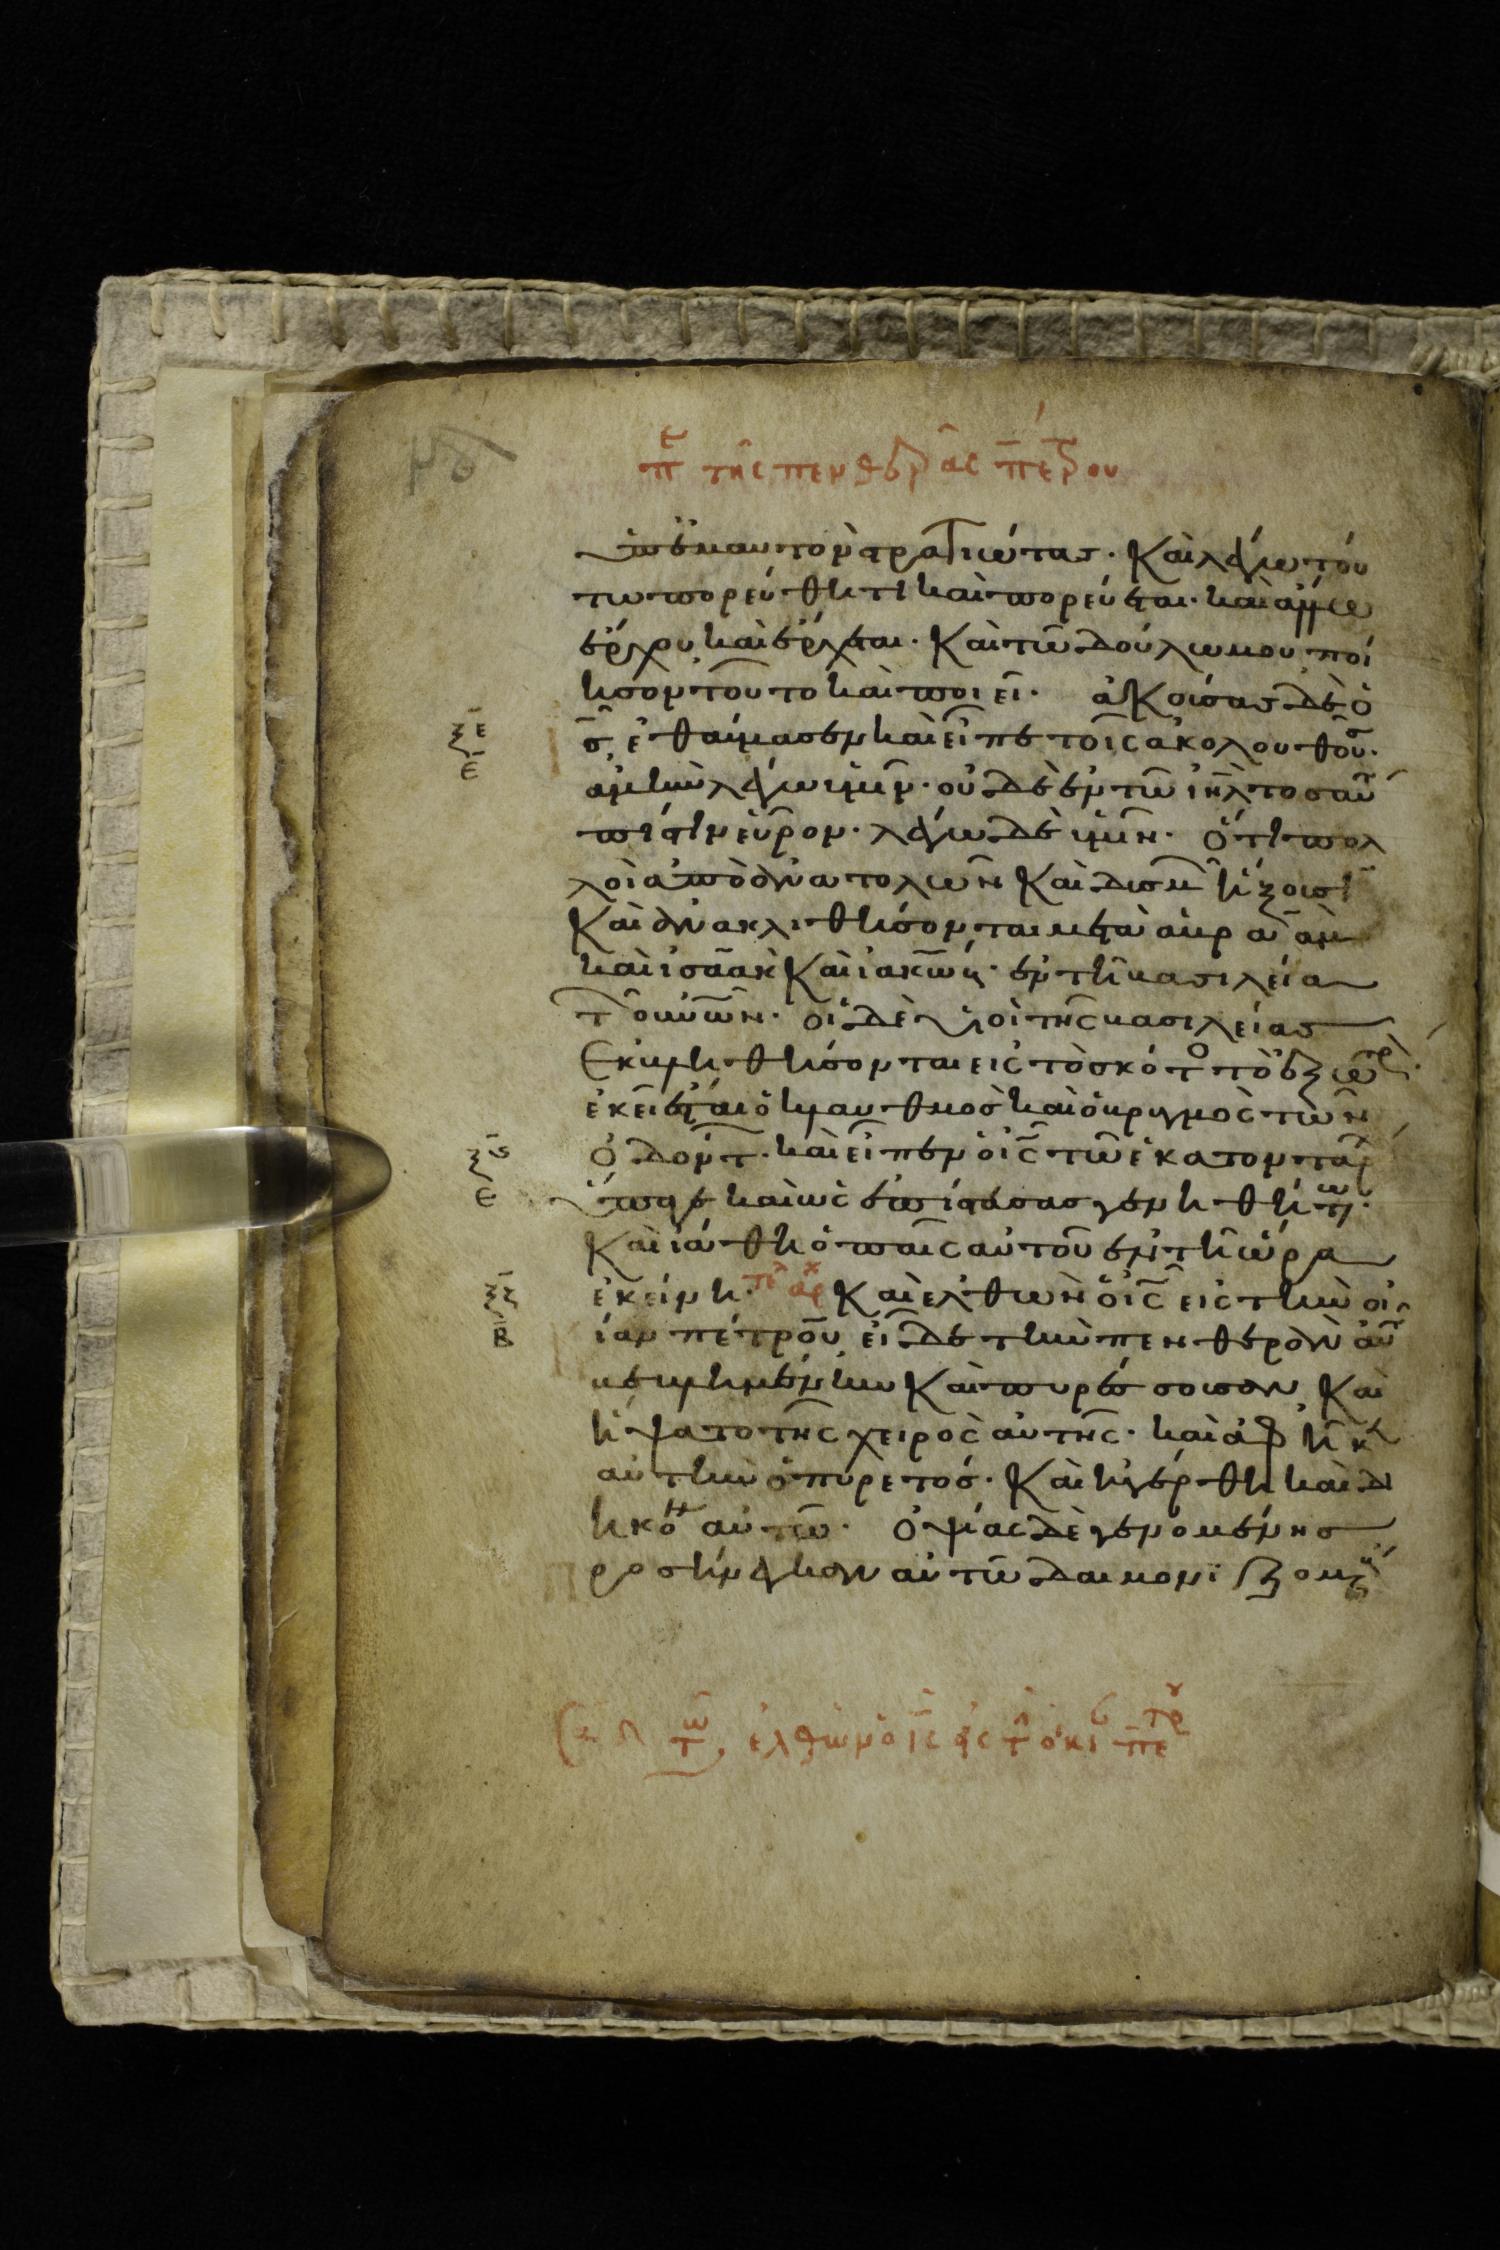 πε τῆς πενθερᾶς πέτρου
ὑπ ἐμαυτὸν στρατιώτας· καὶ λέγω τού
τω πορεύθητι καὶ πορεύεται· καὶ ἄλλω
ἔρχου καὶ ἔρχεται· καὶ τῶ δούλω μου ποί
ησον τοῦτο καὶ ποιεῖ· ἀκούσας δὲ ὁ
ξε
ις ἐθαύμασεν καὶ εἶπε τοῖς ἀκολουθοῦσ·
ε
ἀμὴν λέγω ὑμῖν· οὐδὲ ἐν τῶ ιηλ τοσαύτ
πίστιν εὗρον· λέγω δὲ ὑμῖν· ὅτι πολ
λοὶ ἀπὸ ἀνατολῶν καὶ δυσμ ἥξουσι
καὶ ἀνακλιθήσονται μετὰ ἀβραὰμ
καὶ ἰσαὰκ καὶ ἰακώβ· ἐν τῆ βασιλεία
τ οὐνῶν· οἱ δὲ υἱοὶ τῆς βασιλείας
ἐκβληθήσονται εἰς τὸ σκότο τὸ ἐξώτρ·
ἐκεῖ ἔσται ὁ κλαυθμὸς καὶ ὁ βρυγμὸς τῶν
ξς
ὀδόντ· καὶ εἶπεν ὁ ις τῶ ἑκατοντάρχ
ε
ὕπαγε καὶ ὡς ἐπίστευσας γενηθήτω σοι·
καὶ ἰάθη ὁ παῖς αὐτοῦ ἐν τῆ ὥρα
ξζ
ἐκείνη· τε αρχ καὶ ἐλθὼν ὁ ις εἰς τὴν οἰκ
β
ίαν πέτρου εἶδε τὴν πενθερὰν αὐτ
βεβλημένην καὶ πυρέσσουσαν καὶ
ἥψατο τῆς χειρὸς αὐτῆς· καὶ ἀφῆκ
αὐτὴν ὁ πυρετός· καὶ ἠγέρθη καὶ δι
ηκόν αὐτῶ· ὀψίας δὲ γενομένης
προσήνεγκαν αὐτῶ δαιμονιζομέν
τω, ἐλθὼν ὁ ις εἰς τ οἰκί πετρ